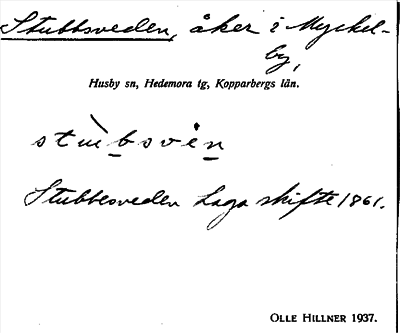 Stubbsveden, åker i Myckel-
by,
Husby sn, Hedemora tg, Kopparbergs län.
Stubbesveden Laga skifte 1861.
OLLE HILLNER 1937.